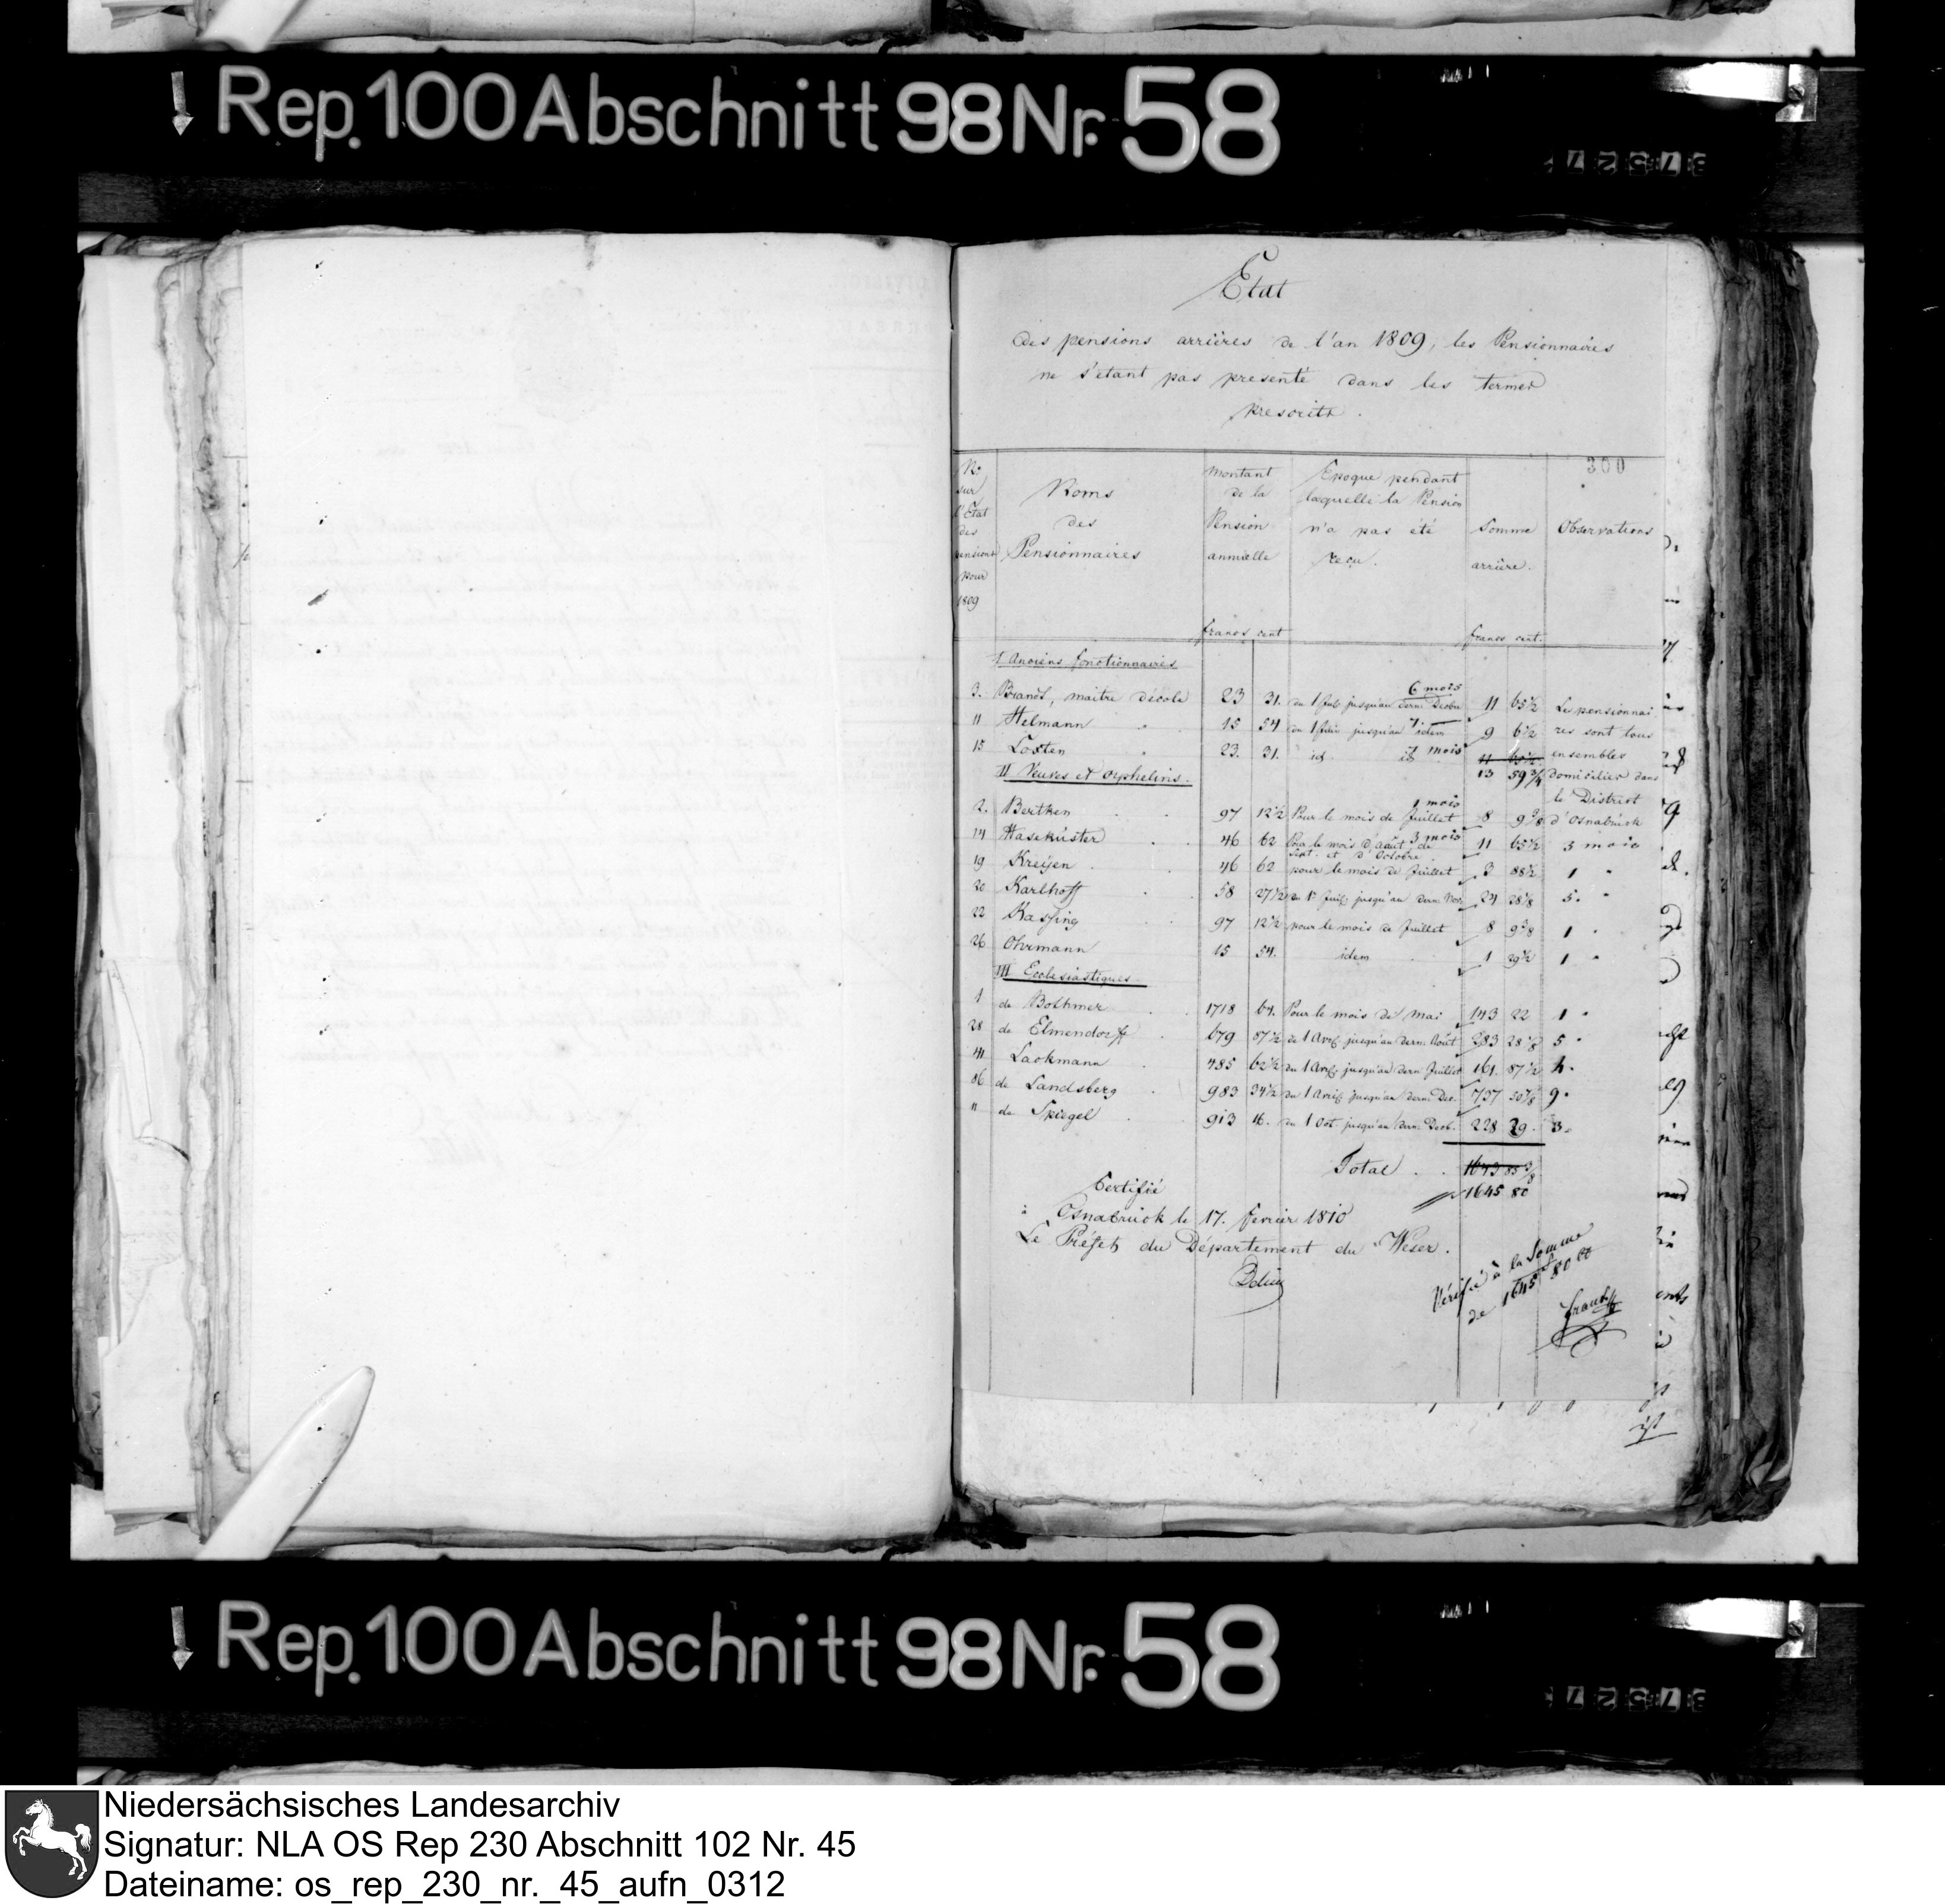 Rep. 100 Abschnitt 98 Nr. 58
Etat
des pensions arrières de l'an 1809, les Pensionnaires
ne s'etant pas presenté dans les termes
prescrits.
300
No sur l'Etat des pensions pour 1809
Noms des Pensionnaires
Montant de la Pension annuelle
Epoque pendant laquelle la Pension n'a pas été reçu.
Somme arrière.
Observations
francs cent
francs cent.
I Anciens fonctionnaires
3. Brandt, maitre d'école 23 31. du 1 Jul. jusqu'au dern. Decbr 6 mois 11 65½ Le pensionnai
11 Helmann 15 54 du 1 Juin jusqu'au idem 7. 9 6½ res sont tous
15 Losten 23. 31. id. id 7 mois 11 65½ ensembles
13 59¾ domiciliés dans
II Veuves et Orphelins.
le District
2. Bertken 97 12½ Pour le mois de Juillet 1 mois 8 9⅜ d'Osnabrück
14 Hasekuster 46 62 Pour le mois d'Août de Sept. et d'Octobre 3 mois 11 65½ 3 mois
19 Kreijen 46 62 pour le mois de Juillet 3 88½ 1 "
20 Karlhoff 58 27½ du 1r Juil. jusqu'au dern. Nov. 24 28⅛ 5. "
22 Kassing 97 12½ pour le mois de Juillet 8 9⅜ 1 "
26 Ohrmann 15 54. idem 1 29½ 1 "
III Ecclesiastiques
1 de Bothmer 1718 64. Pour le mois de Mai 143 22 1 "
28 de Elmendorff 679 87½ de 1 Avril jusqu'au dern. Août 283 28⅛ 5 "
41 Lackmann 485 62½ du 1 Avril jusqu'au dern Juillet 161. 87½ 4. "
86 de Landsberg 983 34½ du 1 Avril jusqu'au dern. Dec. 737 50⅞ 9 "
" de Spiegel 913 16. du 1 Oct. jusqu'au dern. Decb. 228 29. 3. "
Total . . 1643 85⅜
1645 80
Certifié
à Osnabrück le 17. fevrier 1810
Le Préfet du Département du Weser.
Vérifié à la Somme
de 1645 f 80 ct
Rep. 100 Abschnitt 98 Nr. 58
Niedersächsisches Landesarchiv
Signatur: NLA OS Rep 230 Abschnitt 102 Nr. 45
Dateiname: os_rep_230_nr._45_aufn_0312